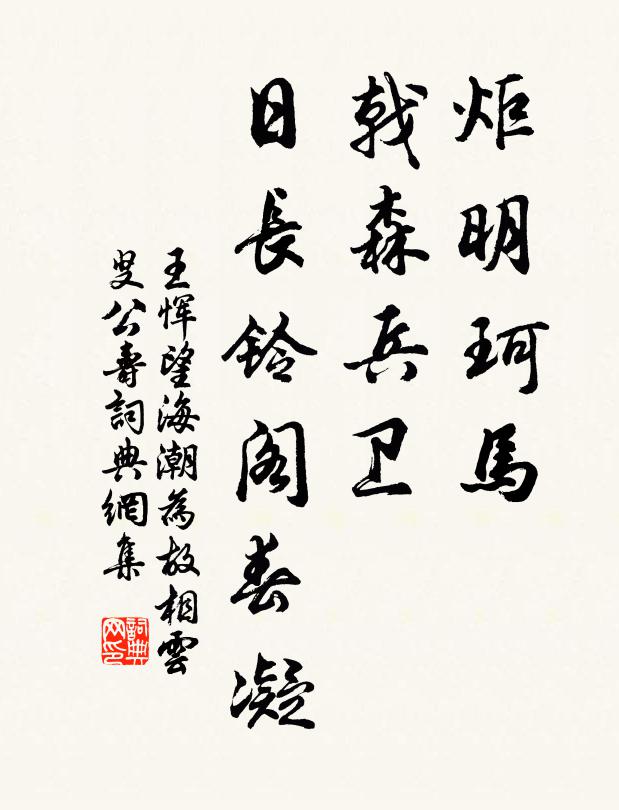 炬明珂馬
戟森兵卫
日長鈴阁春凝
王惲望海潮為故相雲
叟公壽詞典網集
詞典
网印